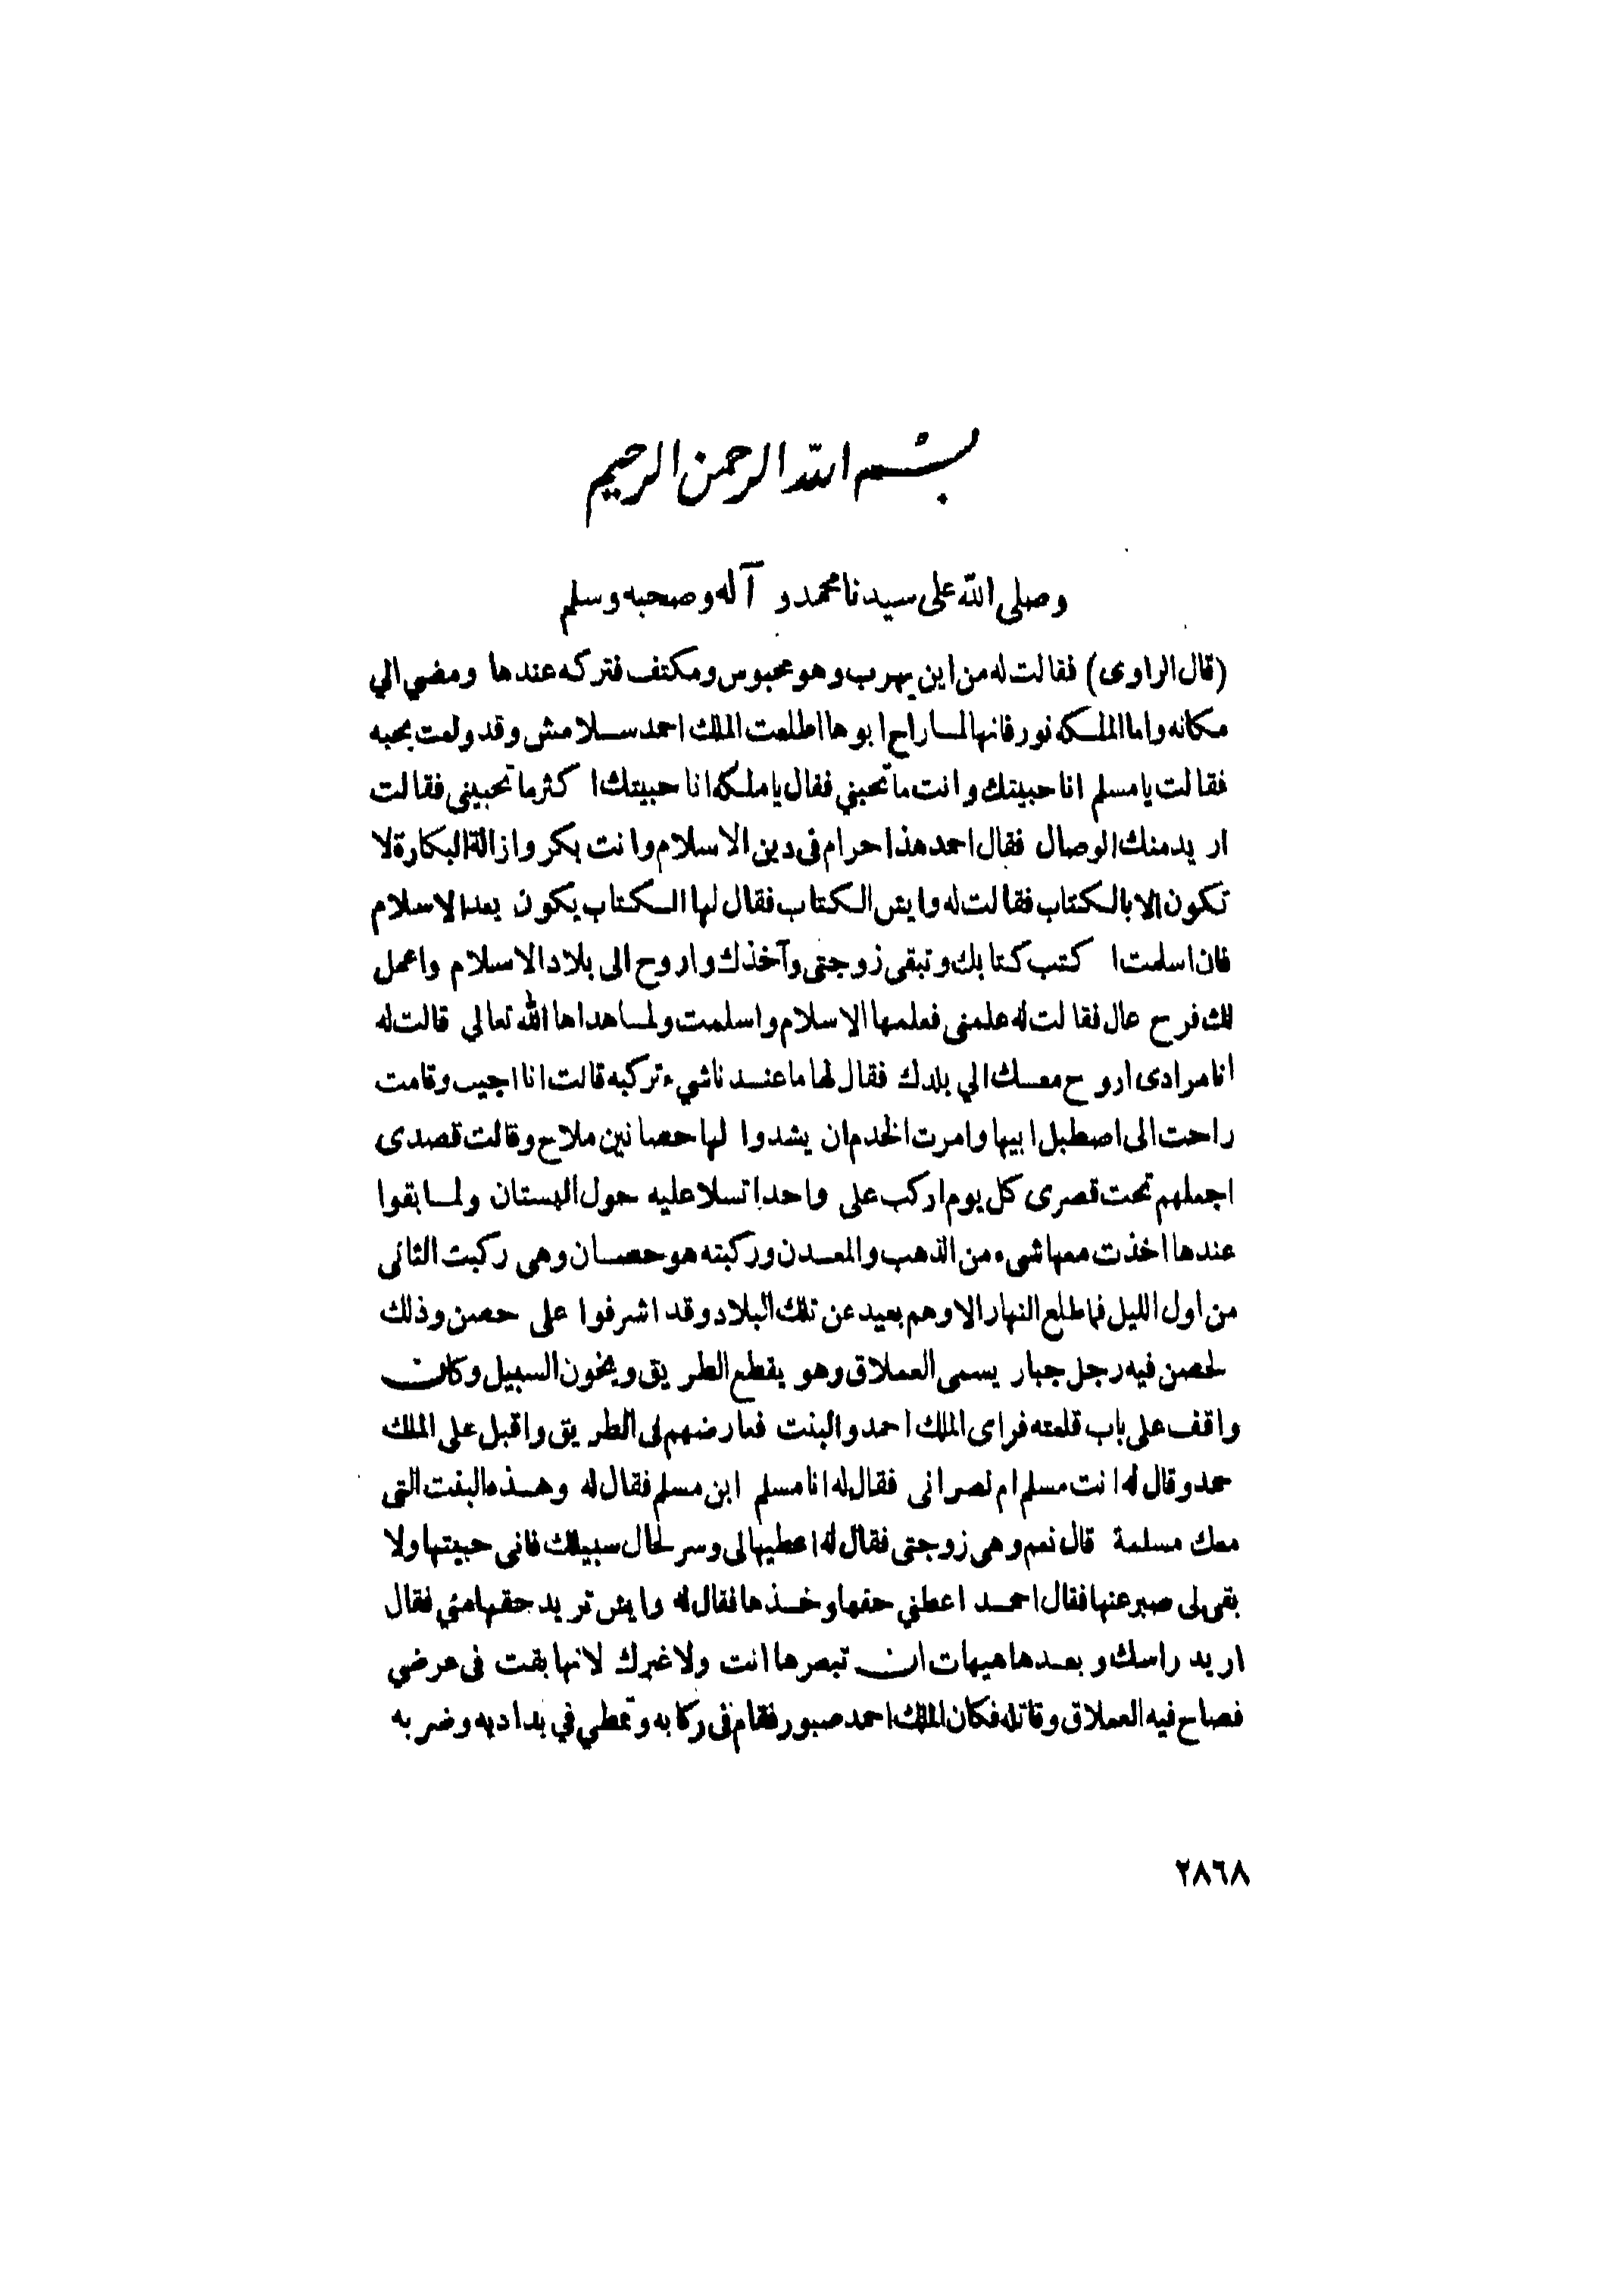 بسم الله الرحمن الرحيم
وصلى الله على سيدنا محمد و آله وصحبه وسلم
(قال الراوى) فقالت له من اين يهرب وهو محبوس ومكتف فتركه عندها ومضي الي
مكانه واما الملكه نور فانها لما راح ابوها اطلعت الملك احمد سلامش وقد ولعت بحبه
فقالت يا مسلم انا حبيتك وانت ما تحبني فقال يا ملكه انا حبيتك اكثر ما تحبينى فقالت
اريد منك الوصال فقال احمد هذا حرام فى دين الاسلام وانت بكر وازالة البكارة لا
تكون الا بالكتاب فقالت له وايش الكتاب فقال لها الكتاب يكون بعد الاسلام
فان اسلمت اكتب كتابك وتبقى زوجتى وآخذك واروح الى بلاد الاسلام واعمل
لك فرح عال فقالت له علمنى فعلمها الاسلام واسلمت ولما هداها الله تعالي قالت له
انا مرادى اروح معك الي بلدك فقال لها ما عندنا شيء تركبه قالت انا اجيب وقامت
راحت الى اصطبل ابيها وامرت الخدم ان يشدوا لها حصانين ملاح وقالت قصدى
اجعلهم تحت قصرى كل يوم اركب على واحد اتسلا عليه حول البستان ولما بقوا
عندها اخذت معها شىء من الذهب والمعدن وركبته هو حصان وهى ركبت الثانى
من اول الليل فما طلع النهار الا وهم بعيد عن تلك البلاد وقد اشرفوا على حصن وذلك
لحصن فيه رجل جبار يسمى العملاق وهو يقطع الطريق ويخون السبيل وكان
واقف على باب قلعته فراى الملك احمد والبنت فعارضهم فى الطريق واقبل على الملك
حمد وقال له انت مسلم ام نصرانى فقال له انا مسلم ابن مسلم فقال له وهذه البنت التى
معك مسلمة قال نعم وهى زوجتى فقال له اعطيها لى وسر لحال سبيلك فانى حبيتها ولا
بقى لى صبر عنها فقال احمد اعطني حقها وخذها فقال له وايش تريد حقها مني فقال
اريد راسك وبعدها هيهات ان تبصرها انت ولا غيرك لانها بقت فى عرضي
فصاح فيه العملاق وقاتله فكان الملك احمد صبور فقام فى ركابه وتمطي في بداديه وضربه
٢٨٦٨